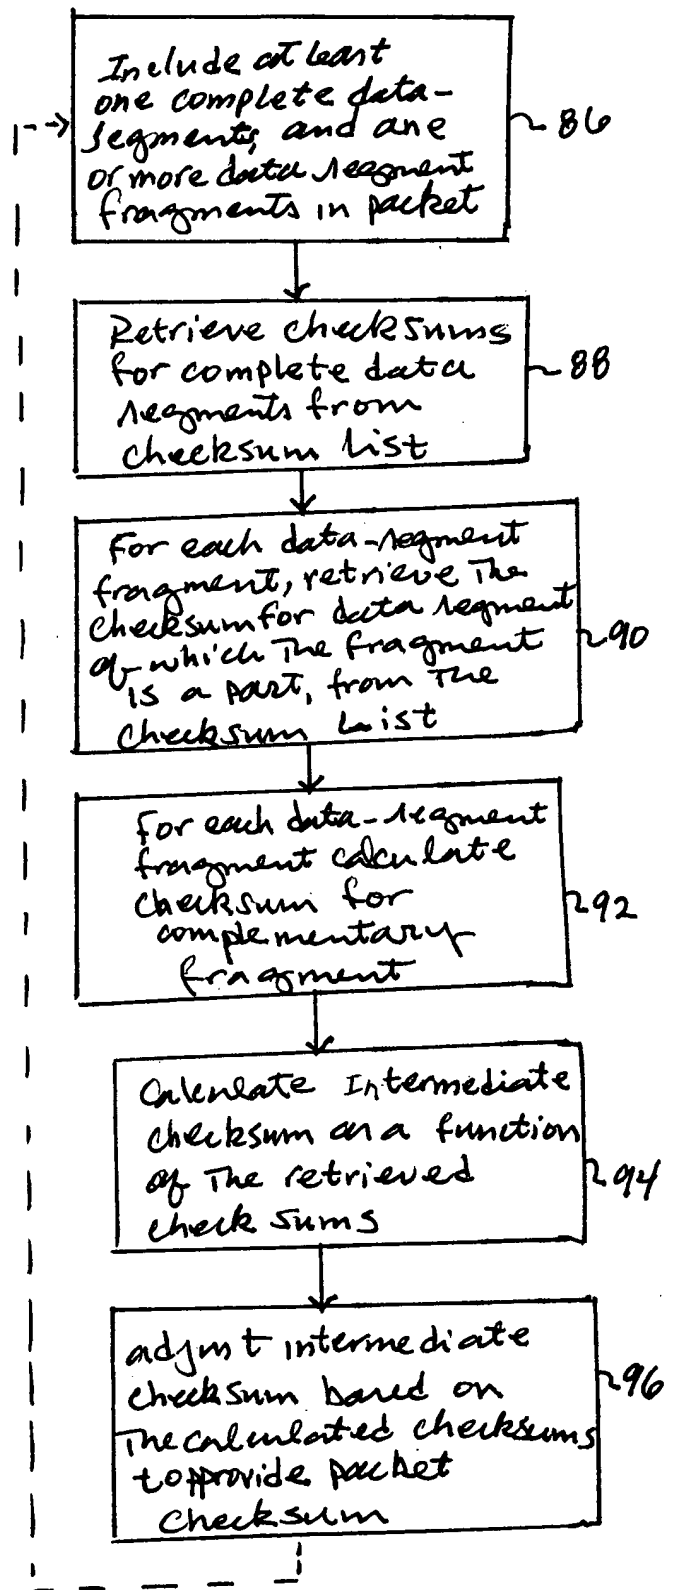 Include at least
one complete data-
segments, and one
or more data segment
fragments in packet
86
Retrieve checksums
for complete data
segments from
checksum list
88
For each data-segment
fragment, retrieve The
checksum for data segment
of which The fragment
is a part, from The
checksum List
90
For each data-segment
fragment calculate
checksum for
complementary
fragment
92
Calculate Intermediate
checksum as a function
of The retrieved
check sums
94
adjust intermediate
checksum based on
The calculated checksums
to pprovide packet
checksum
96